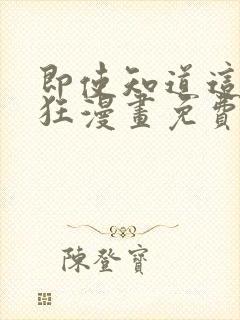 即使知道這
狂漫畫免費
陳登寶